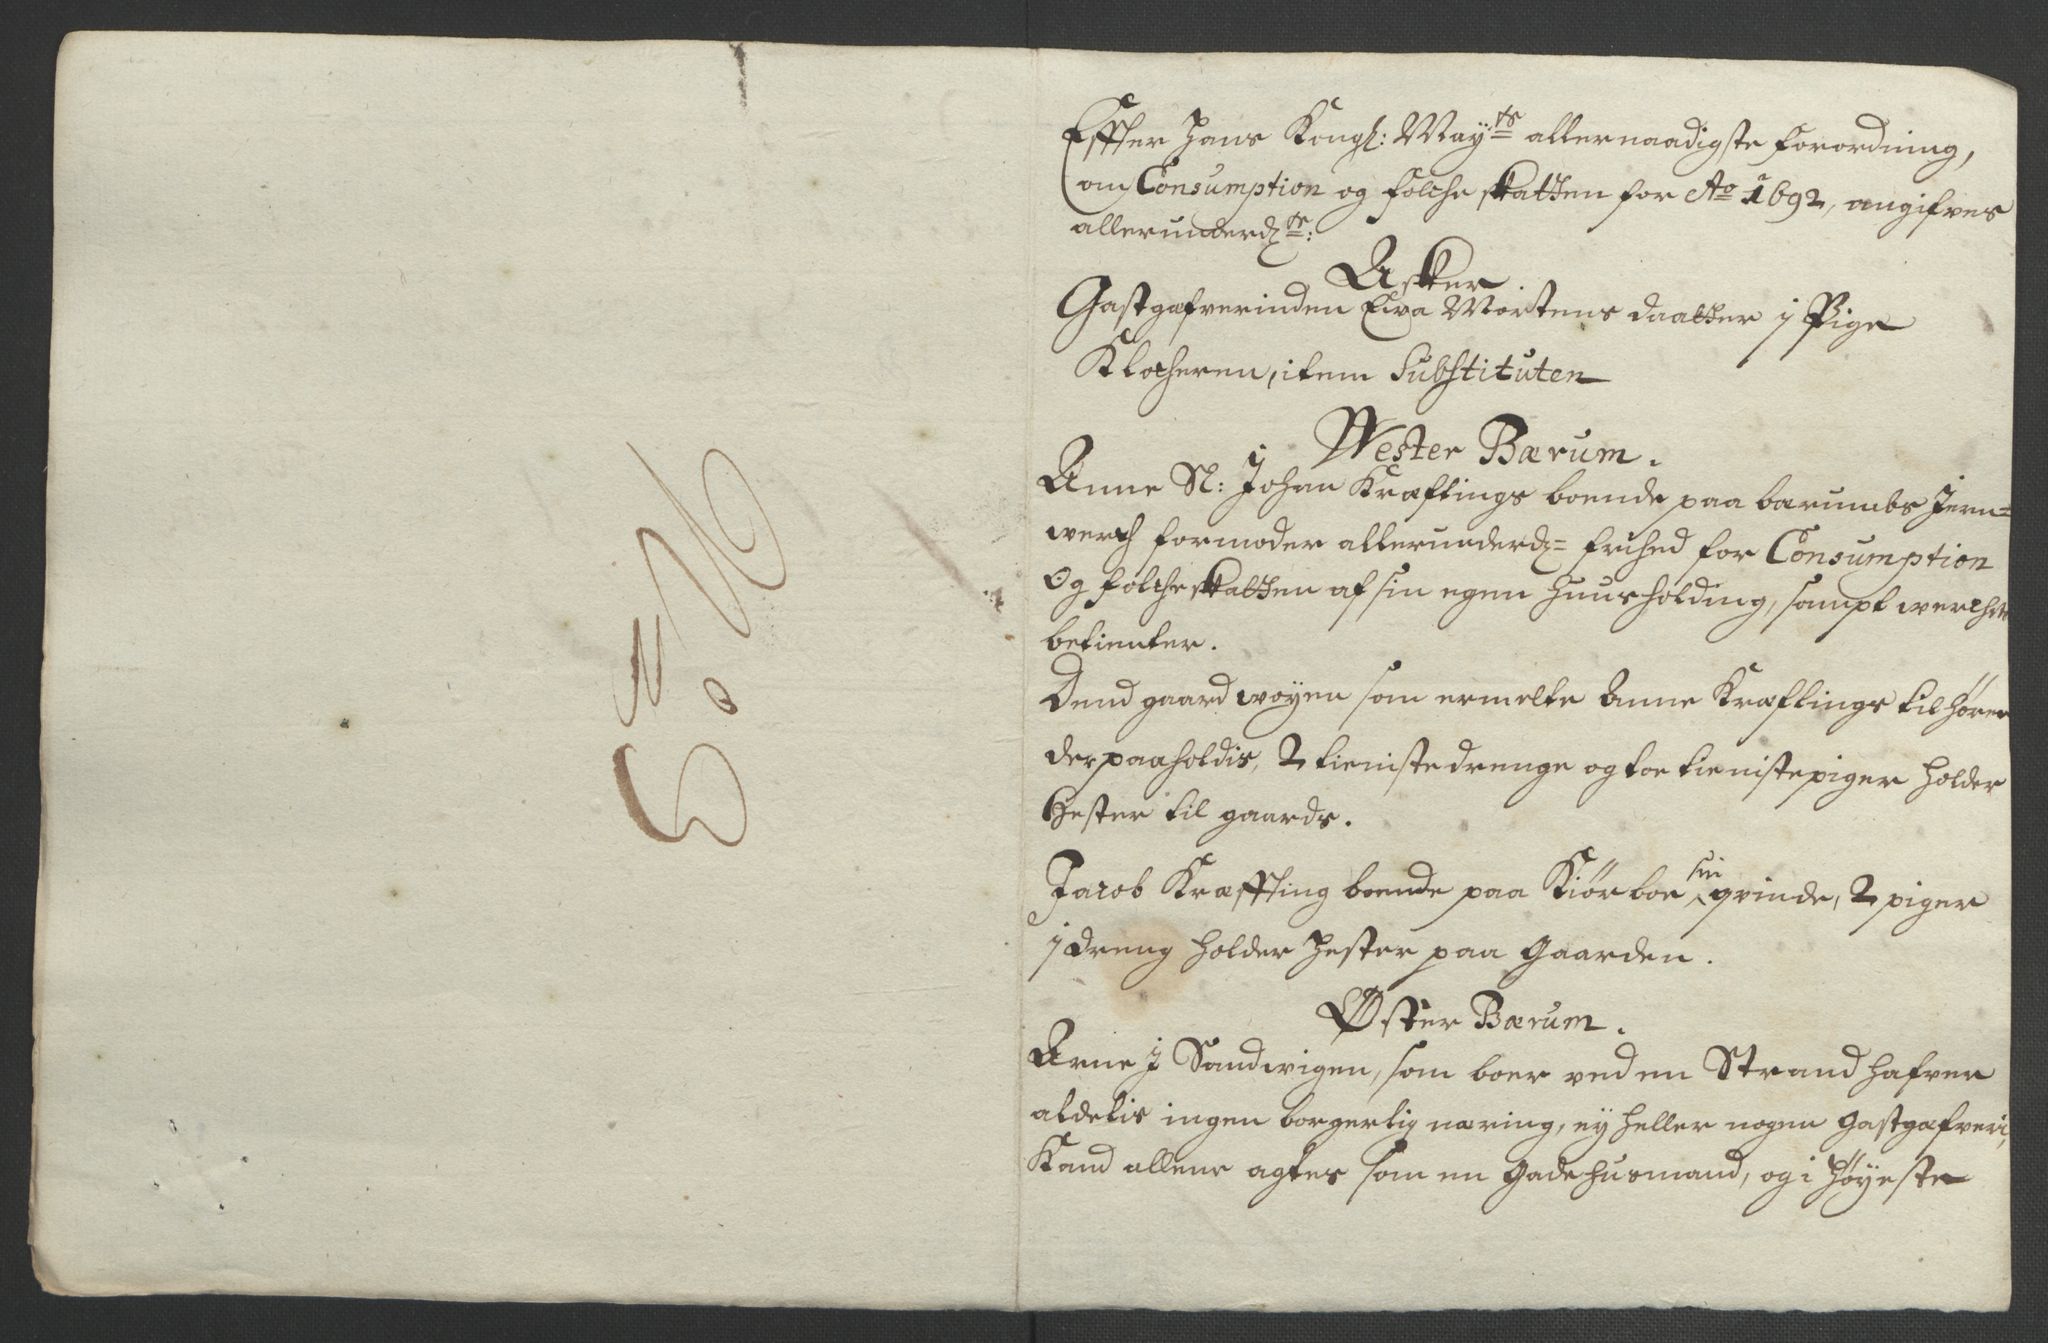 Effter Hans Kongl: May:ts allernaadigste forordning,
om Consumption og folche skatten for Ao 1692, angifves
allerunderd:te:
Asker
Gastgafverinden Ewa Mortens daatter 1 Pige
Klocheren, item Substituten
Wester Bærum.
Anne Sl: Johan Kræftings boende paa bærumbs Jern=
werch formoder allerunderd:= frihed for Consumption
Og folche skatten af sin egen huusholding, sampt werchets
betienter.
Dend gaard woyen som ermelte Anne Kræftings tilhører
der paaholdis, 2 tieniste drenge og toe tieniste piger holder
Hester til gaards.
Jacob Kræffting boende paa Kiørboe sin qvinde, 2 piger
1 dreng holder Hester paa Gaarden.
Øster Bærum.
Arne J Sandwigen, som boer ved en Strand hafver
aldelis ingen borgerlig næring, ey heller nogen Gastgafveri,
Kand allene agtes som en Gadehusmand, og i høyeste